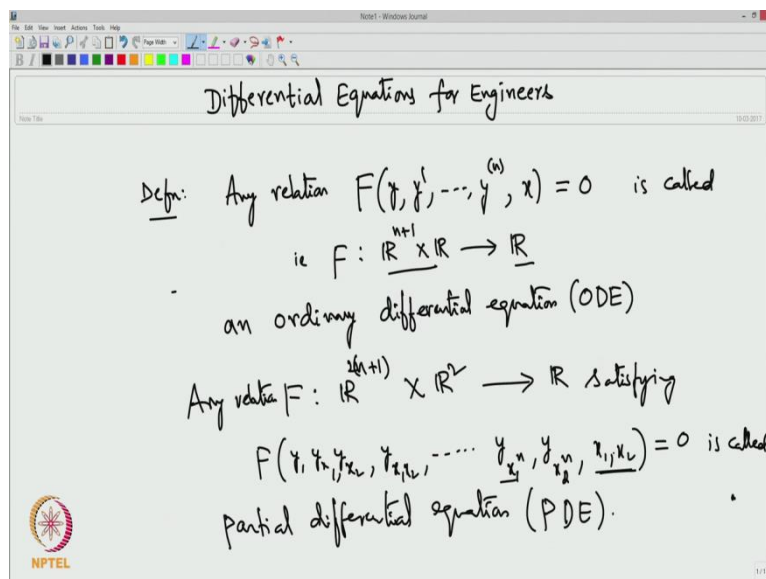 Note1 - Windows Journal
File Edit View Insert Actions Tools Help
Page Width
B I
Differential Equations for Engineers
Note Title
Defn: Any relation F(y, y', ---, y^(n), x) = 0 is called
ie F : ℝ^{n+1} × ℝ → ℝ
an ordinary differential equation (ODE)
Any relation F : ℝ^{2(n+1)} × ℝ^2 → ℝ satisfying
F(y, y_{x_1}, y_{x_2}, y_{x_1x_2}, ----- y_{x_1^n}, y_{x_2^n}, x_1, x_2) = 0 is called
partial differential equation (PDE).
NPTEL
1/1